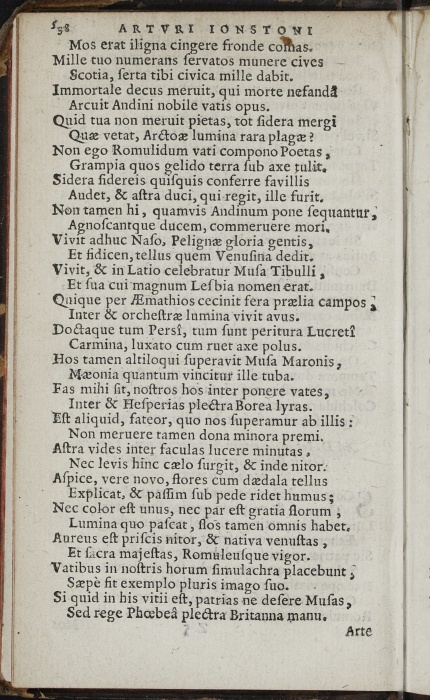 558 ARTVRI IONSTONI
Mos erat iligna cingere fronde comas.
Mille tuo numerans ſervatos munere cives
Scotia, ſerta tibi civica mille dabit.
Immortale decus meruit, qui morte nefandâ
Arcuit Andini nobile vatis opus.
Quid tua non meruit pietas, tot ſidera mergi
Quæ vetat, Arctoæ lumina rara plagæ?
Non ego Romulidum vati compono Poetas,
Grampia quos gelido terra ſub axe tulit.
Sidera ſidereis quiſquis conferre favillis
Audet, & aſtra duci, qui regit, ille furit.
Non tamen hi, quamvis Andinum pone ſequantur,
Agnoſcantque ducem, commeruere mori.
Vivit adhuc Naſo, Pelignæ gloria gentis,
Et fidicen, tellus quem Venuſina dedit.
Vivit, & in Latio celebratur Muſa Tibulli,
Et ſua cui magnum Leſbia nomen erat.
Quique per Æmathios cecinit fera prælia campos,
Inter & orcheſtræ lumina vivit avus.
Doctaque tum Persî, tum ſunt peritura Lucretî
Carmina, luxato cum ruet axe polus.
Hos tamen altiloqui ſuperavit Muſa Maronis,
Mæonia quantum vincitur ille tuba.
Fas mihi ſit, noſtros hos inter ponere vates,
Inter & Heſperias plectra Borea lyras.
Eſt aliquid, fateor, quo nos ſuperamur ab illis:
Non meruere tamen dona minora premi.
Aſtra vides inter faculas lucere minutas,
Nec levis hinc cælo ſurgit, & inde nitor.
Aſpice, vere novo, flores cum dædala tellus
Explicat, & paſſim ſub pede ridet humus;
Nec color eſt unus, nec par eſt gratia florum,
Lumina quo paſcat, flos tamen omnis habet.
Aureus eſt priſcis nitor, & nativa venuſtas,
Et ſacra majeſtas, Romuleuſque vigor.
Vatibus in noſtris horum ſimulachra placebunt;
Sæpè fit exemplo pluris imago ſuo.
Si quid in his vitii eſt, patrias ne deſere Muſas,
Sed rege Phœbeâ plectra Britanna manu.
Arte